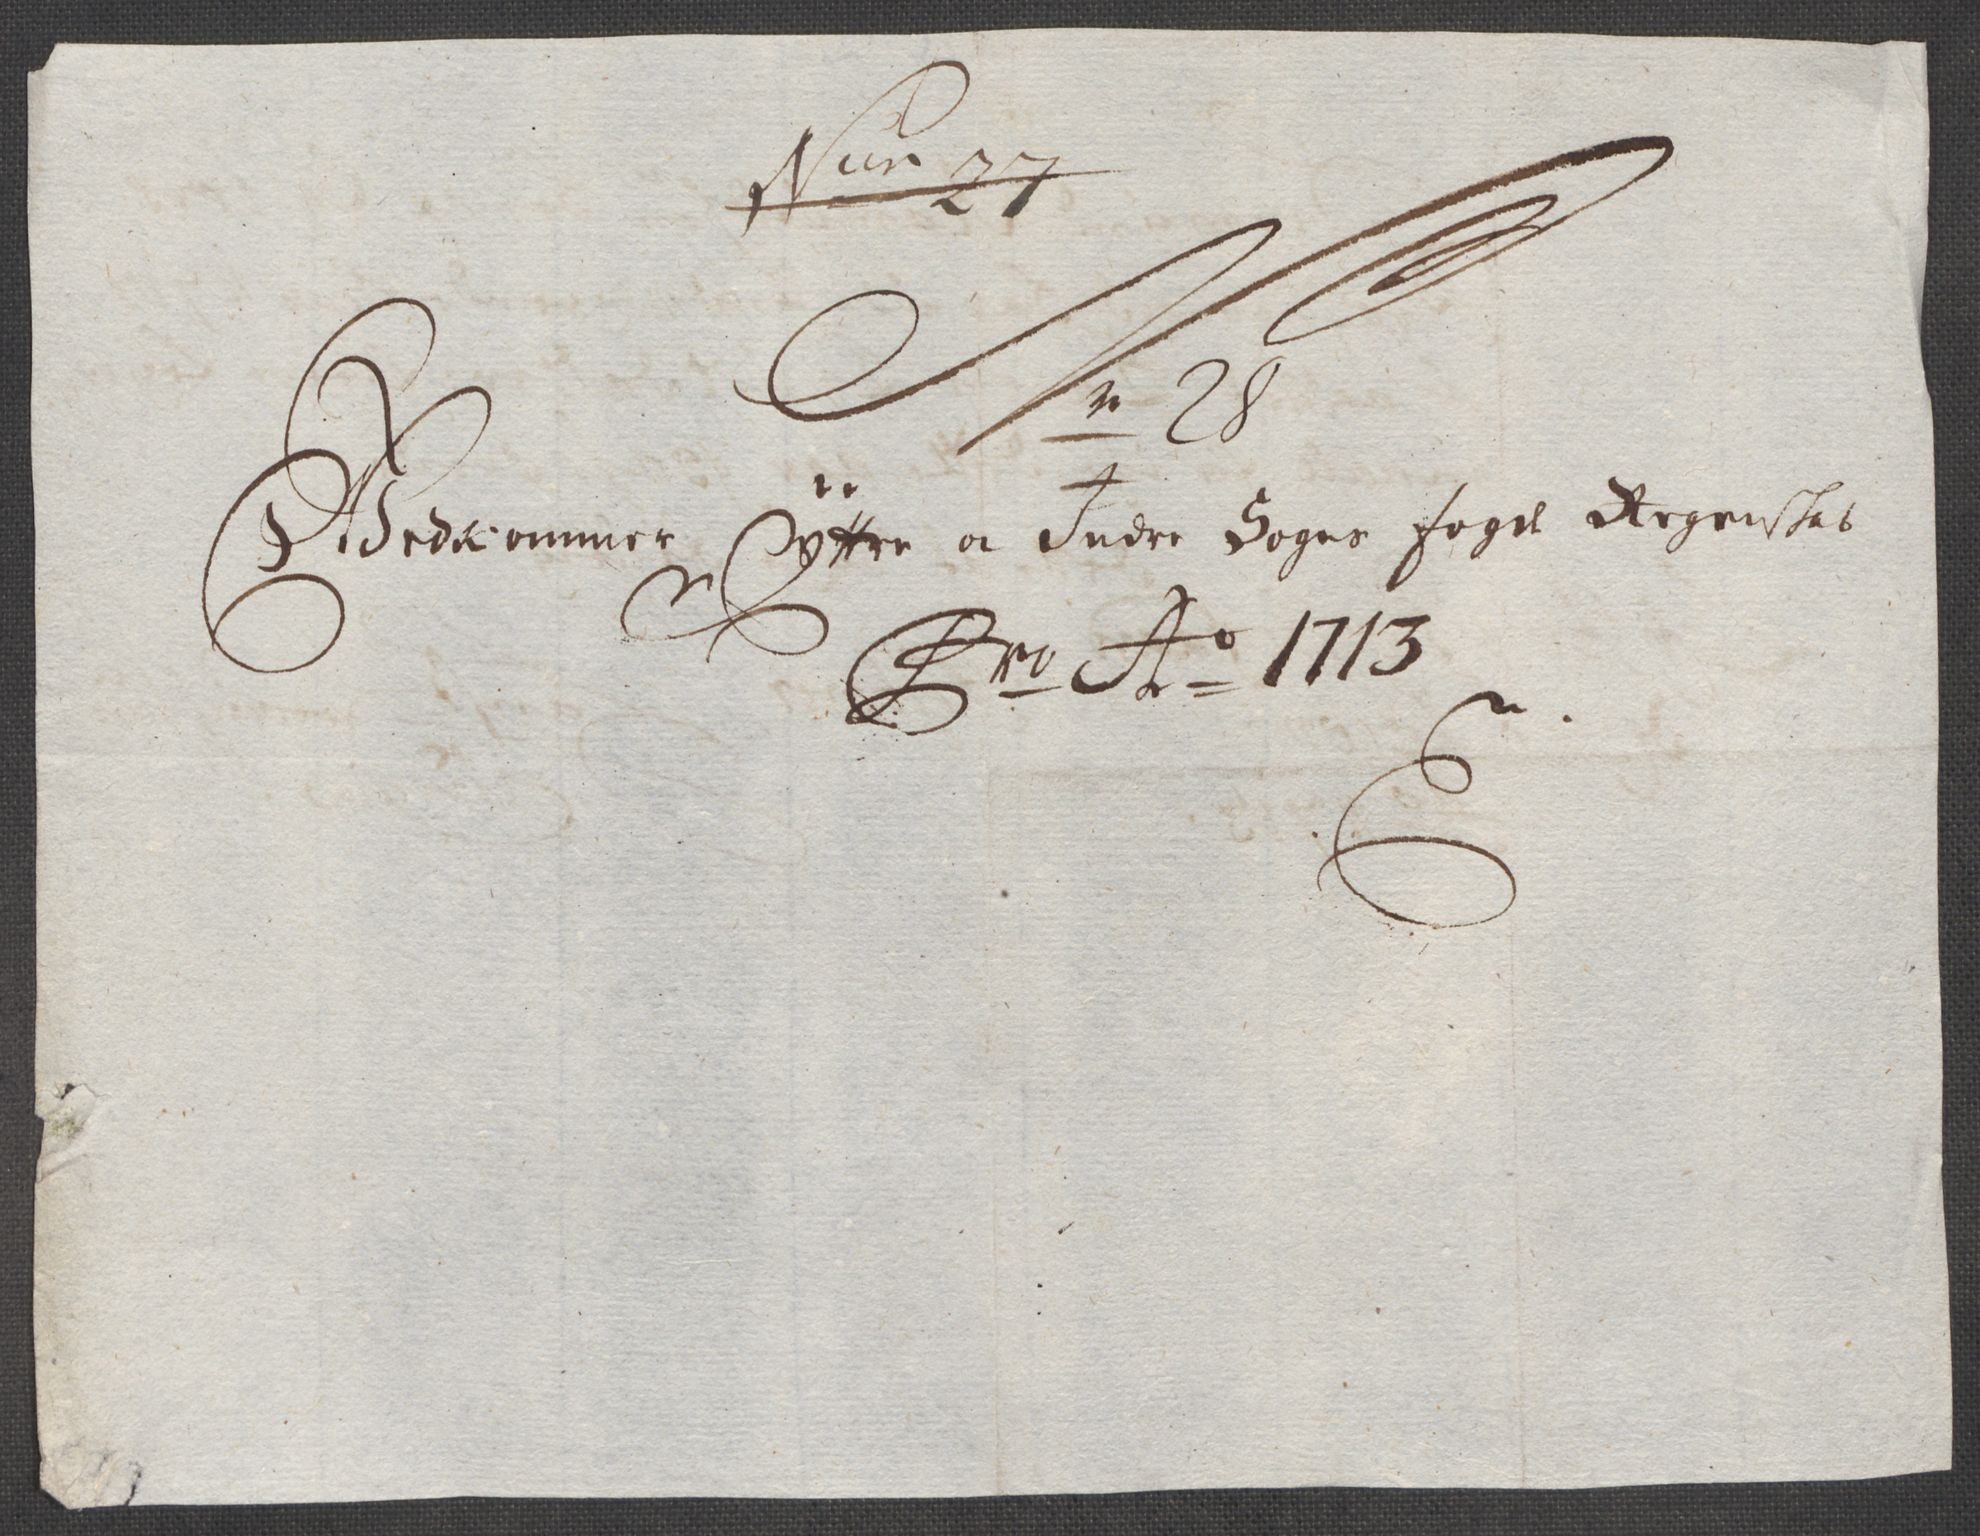 Num 27
No 28
Vedkommer Yttre og Indre Sogns fogd Regenskab
Pro Ao 1713